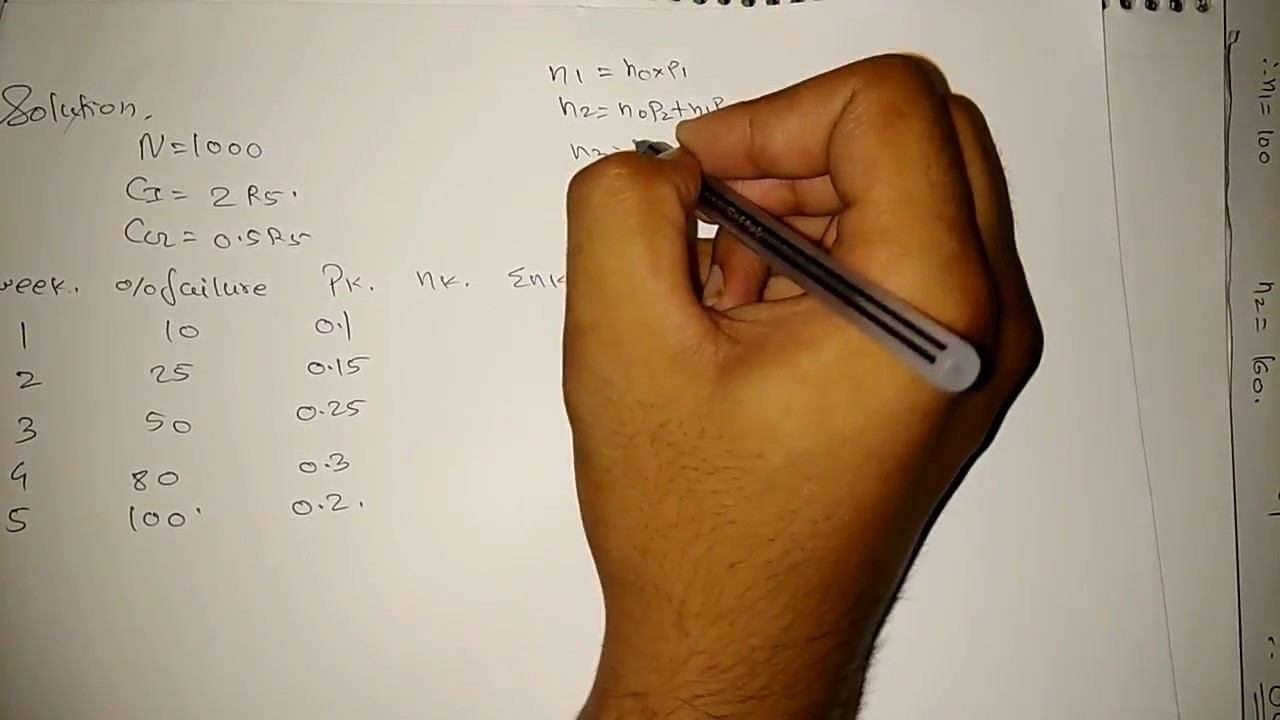 Solution.
N=1000
CI= 2 RS.
CGR= 0.5RS
n1 = n0xP1
n2= n0P2+n1P
n3=
week. % failure Pk. nk. Σnk
1 10 0.1
2 25 0.15
3 50 0.25
4 80 0.3
5 100 0.2.
∴n1= 100
n2= 160.